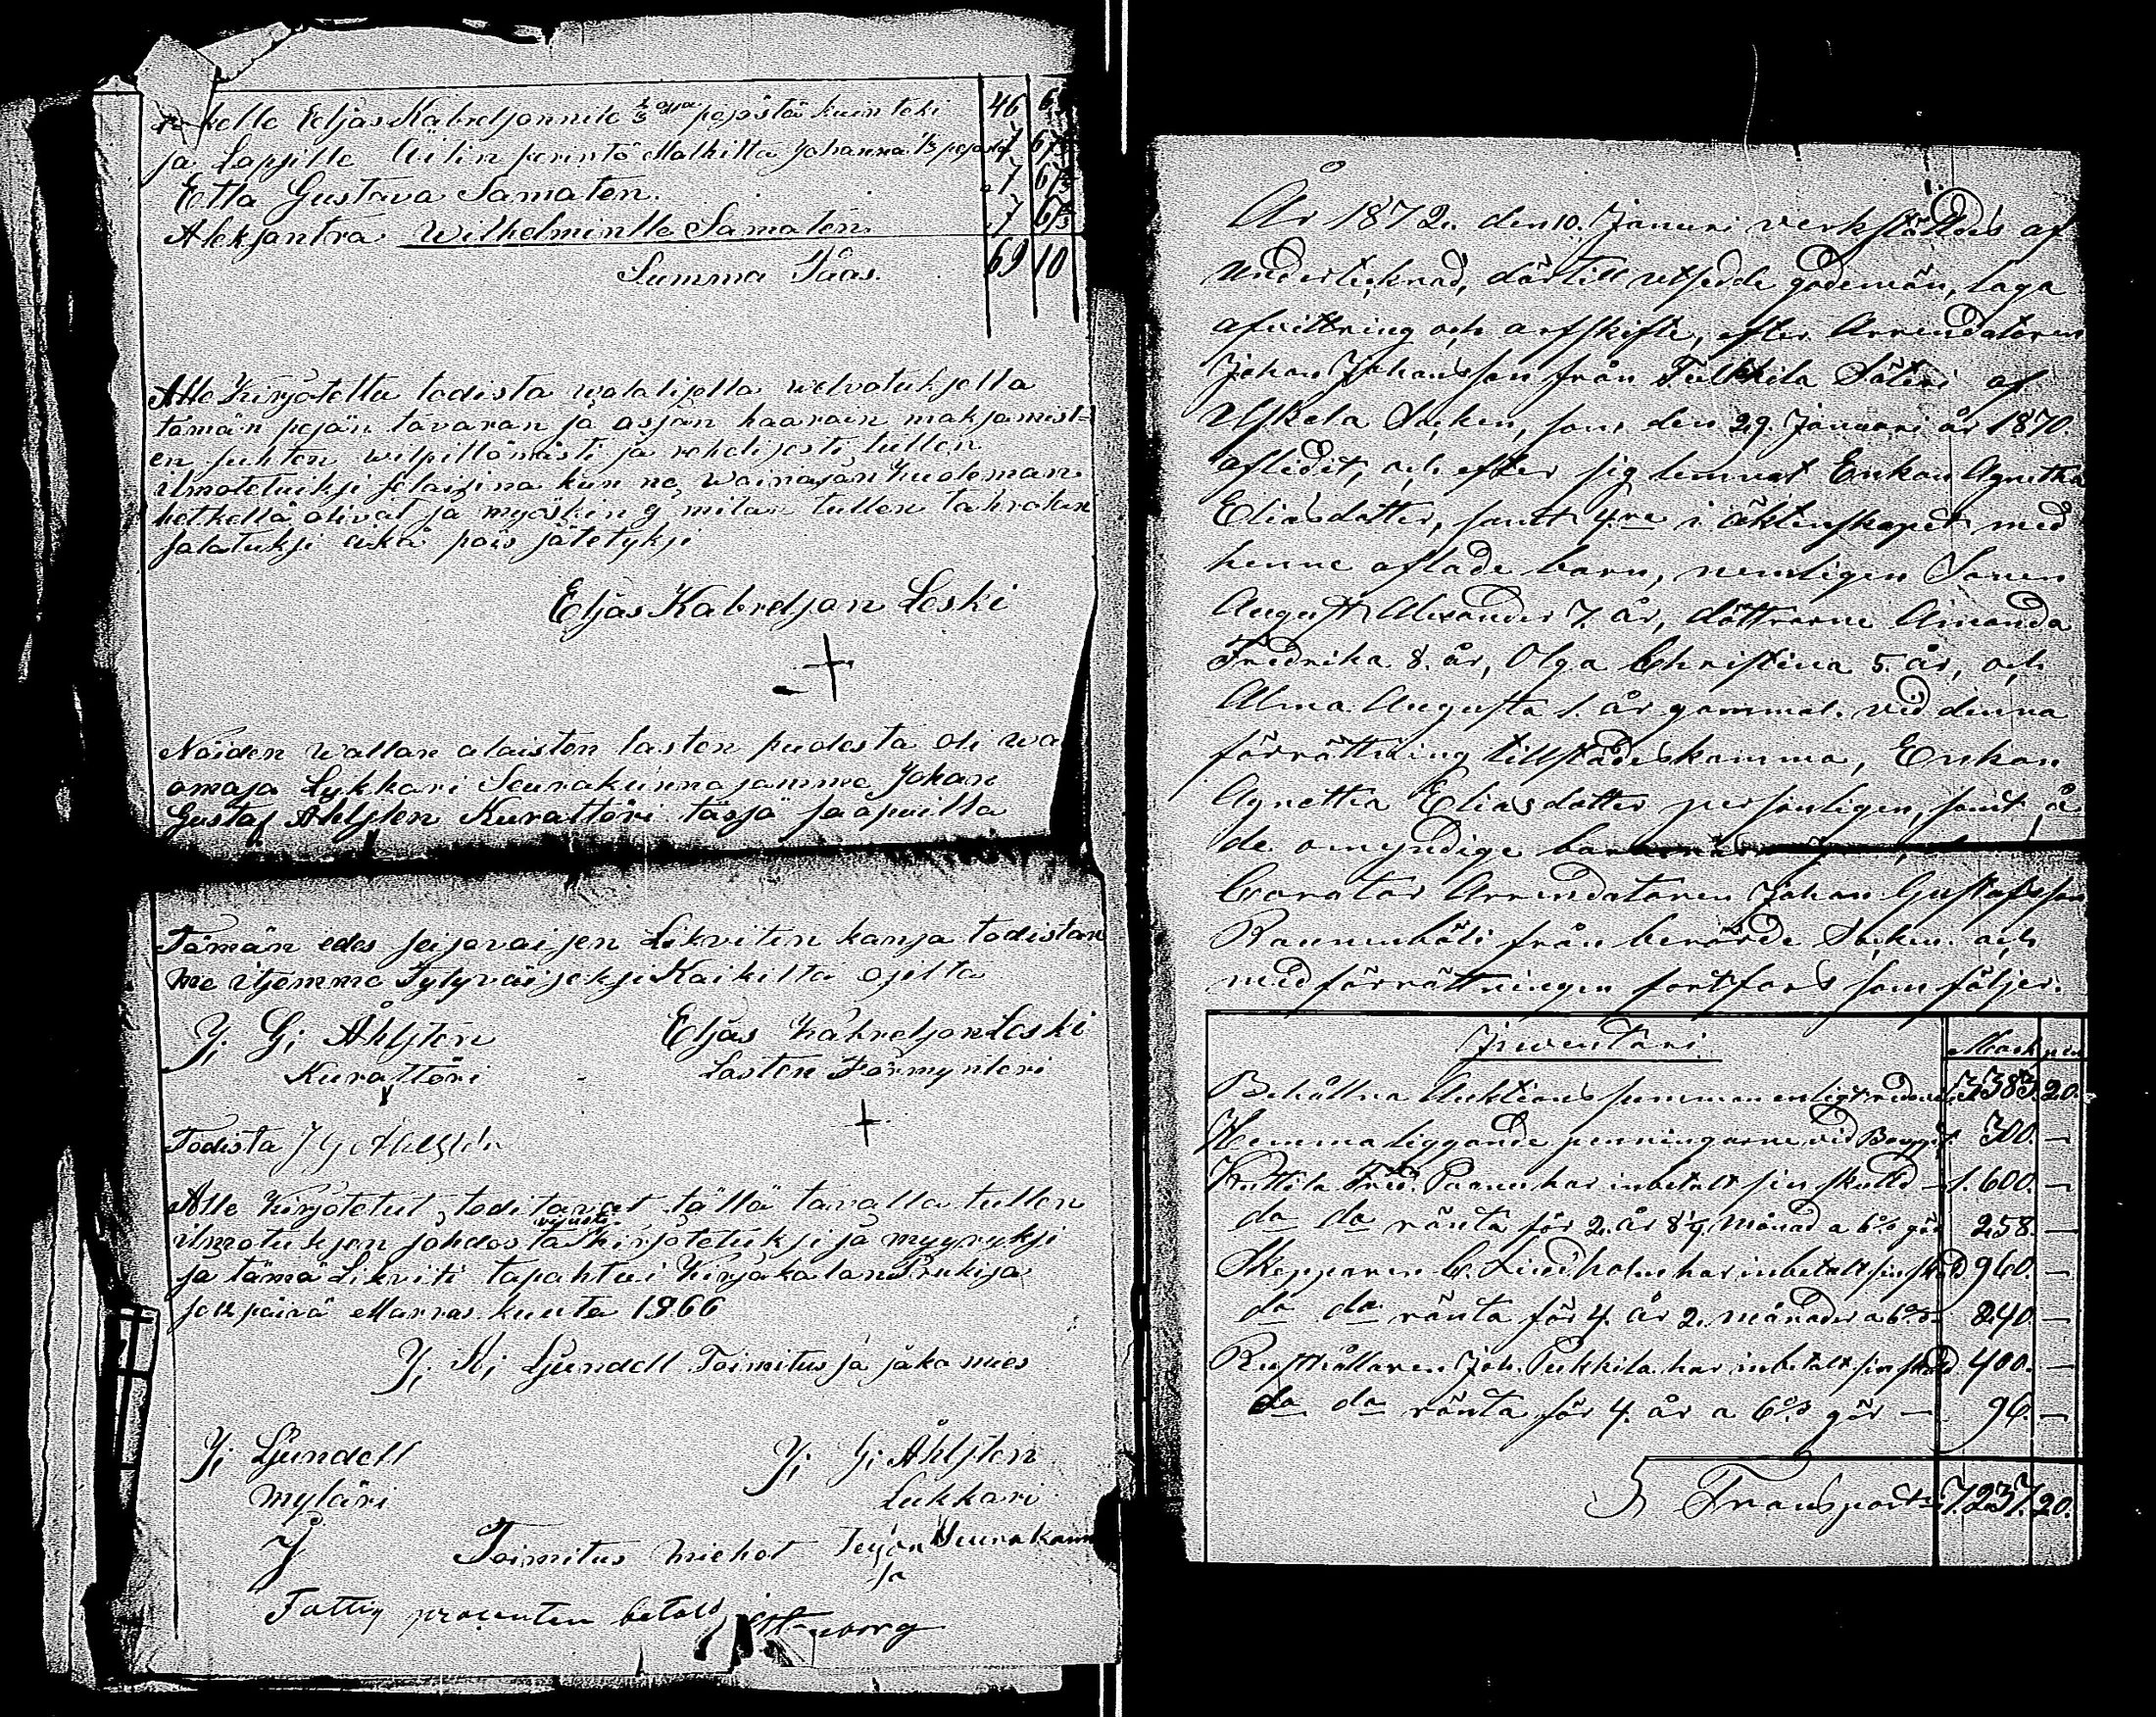 kelle Eljas Kabreljonnile 2/3 osa pesästä kuin teki 46
ja Lapsille Äitin perintö Matkilta Johanna 1/3 pesästä 7 67
Etla Gustava Samaten 7 67
Aleksantra Wilhelmintle Samaten 7 67
Summa Sáas. 69 10
Alle Kirjotettu todista walalisella welvotuksella
tämän pesän tavaran ja asjan haarain maksamist
en suhten wilpittömästi ja rehelisesti tullen
ilmotetuiksi selaisina kun ne wainajan kuoleman
hetkellä olivat ja myöskin ej mitän tullen tahvatun
salatuksi eikä pois jätetyksi
Eljas Kabreljon Leski
Näiden wallan alaisten lasten puolesta oli wa
omaja Lykkari Seurakunnasamme Johan
Gustaf Ahlsten Kurattöri täsjä saapuilla
Tämän edes seisovaisen Likvitin kansa todistan
me itjemme Tytyväiseksi Kaikilta osilta
J. G; Åhlsten Eljas Kabreljon Leski
Kurattöri Lasten Förmynteri
Todista J G Ahlstén
Alle Kirjotetut todistavat tällä tavalla tullen
ilmotuksen johdosta kirjotetuksi ja myyryksi
ja tämä Likviti tapahtui Kirjakalan Prukisa
se 12 päivä Marras kuuta 1866
J; A; Ljundell Toimitus ja jako mies
J; Ljundell J; G; Åhlsten
myläri Lukkari
Toimitus miehet Teijon Seurakann
sa
Fattig procenten betald
År 1872. den 10. Januri verkställdes af
undertecknad, därtill utsedde godemän, laga
afvittring och arfskifte, efter Arrendatoren
Johan Johansson från Tulkkila Säteri af
Uskela Socken, som den 29. Januari år 1870.
aflidit, och efter sig lemnat Enkan Agnetha
Eliasdotter, samt 4.ra i äktenskapet med
henne aflade barn, nemligen Sonen
August Alexander 7. år, döttrarne Amanda
Fredrika 8. år, Olga Christina 5. år, och
Alma Augusta 1. år gammal. vid denna
förrättning tillstädeskomma, Enkan
Agnetta Eliasdotter personligen, samt å
de omyndige barnens
Curator Arrendatoren Johan Gustafsson
från berörde Socken. och
med förrättningen fortfors som följer.
Inventari Mark pen
Behållna Auktions summan enligt 3383. 20.
Hemma liggande penningarne vid 300. —
Kuttila Fred. Paanu har inbetalt sin skuld — 1.600. —
do do ränta för 2. år 8 1/4 månad a 6% gör 258. —
Skepparen C. Lindholm har inbetalt sin skuld 960. —
do do ränta för 4. år 2. månader a 6% 240. —
Rusthållaren Joh. Pukkila har inbetalt sin skuld 400. —
do do ränta för 4. år a 6% gör — 96. —
Transport 7.237. 20.